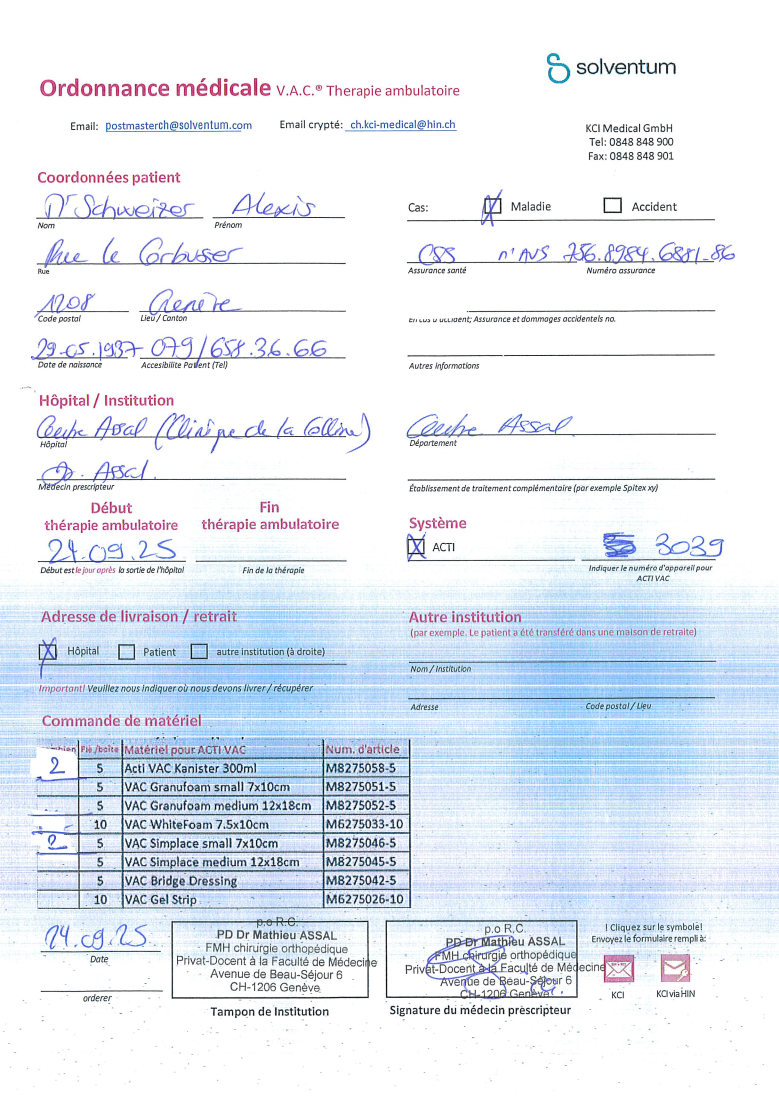 solventum
Ordonnance médicale V.A.C.® Therapie ambulatoire
Email: postmasterch@solventum.com Email crypté: ch.kci-medical@hin.ch
KCI Medical GmbH
Tel: 0848 848 900
Fax: 0848 848 901
Coordonnées patient
Dr Schweizer Alexis
Nom Prénom
Cas: Maladie Accident
Rue le Corbusier
Rue
CSS n°AVS 756.8984.6881-86
Assurance santé Numéro assurance
1208 Genève
Code postal Lieu / Canton
En cas d'accident; Assurance et dommages accidentels no.
29.05.1937 079/658.36.66
Date de naissance Accesibilite Patient (Tel)
Autres informations
Hôpital / Institution
Centre Assal (Clinique de la Colline)
Hôpital
Centre Assal
Département
Dr. Assal.
Médecin prescripteur
Établissement de traitement complémentaire (par exemple Spitex xy)
Début thérapie ambulatoire
Fin thérapie ambulatoire
Système
24.09.25
Début est le jour après la sortie de l'hôpital
Fin de la thérapie
ACTI 3039
Indiquer le numéro d'appareil pour
ACTI VAC
Adresse de livraison / retrait
Hôpital Patient autre institution (à droite)
Important! Veuillez nous indiquer où nous devons livrer / récupérer
Autre institution
(par exemple. Le patient a été transféré dans une maison de retraite)
Nom / Institution
Adresse Code postal / Lieu
Commande de matériel
Piè./boîte Matériel pour ACTI VAC Num. d'article
2 5 Acti VAC Kanister 300ml M8275058-5
5 VAC Granufoam small 7x10cm M8275051-5
5 VAC Granufoam medium 12x18cm M8275052-5
10 VAC WhiteFoam 7.5x10cm M6275033-10
2 5 VAC Simplace small 7x10cm M8275046-5
5 VAC Simplace medium 12x18cm M8275045-5
5 VAC Bridge Dressing M8275042-5
10 VAC Gel Strip M6275026-10
24.09.25
Date
orderer
p.o R.C.
PD Dr Mathieu ASSAL
FMH chirurgie orthopédique
Privat-Docent à la Faculté de Médecine
Avenue de Beau-Séjour 6
CH-1206 Genève
Tampon de Institution
p.o R.C.
PD Dr Mathieu ASSAL
FMH chirurgie orthopédique
Privat-Docent à la Faculté de Médecine
Avenue de Beau-Séjour 6
CH-1206 Genève
Signature du médecin prescripteur
! Cliquez sur le symbole!
Envoyez le formulaire rempli à:
KCI KCI via HIN